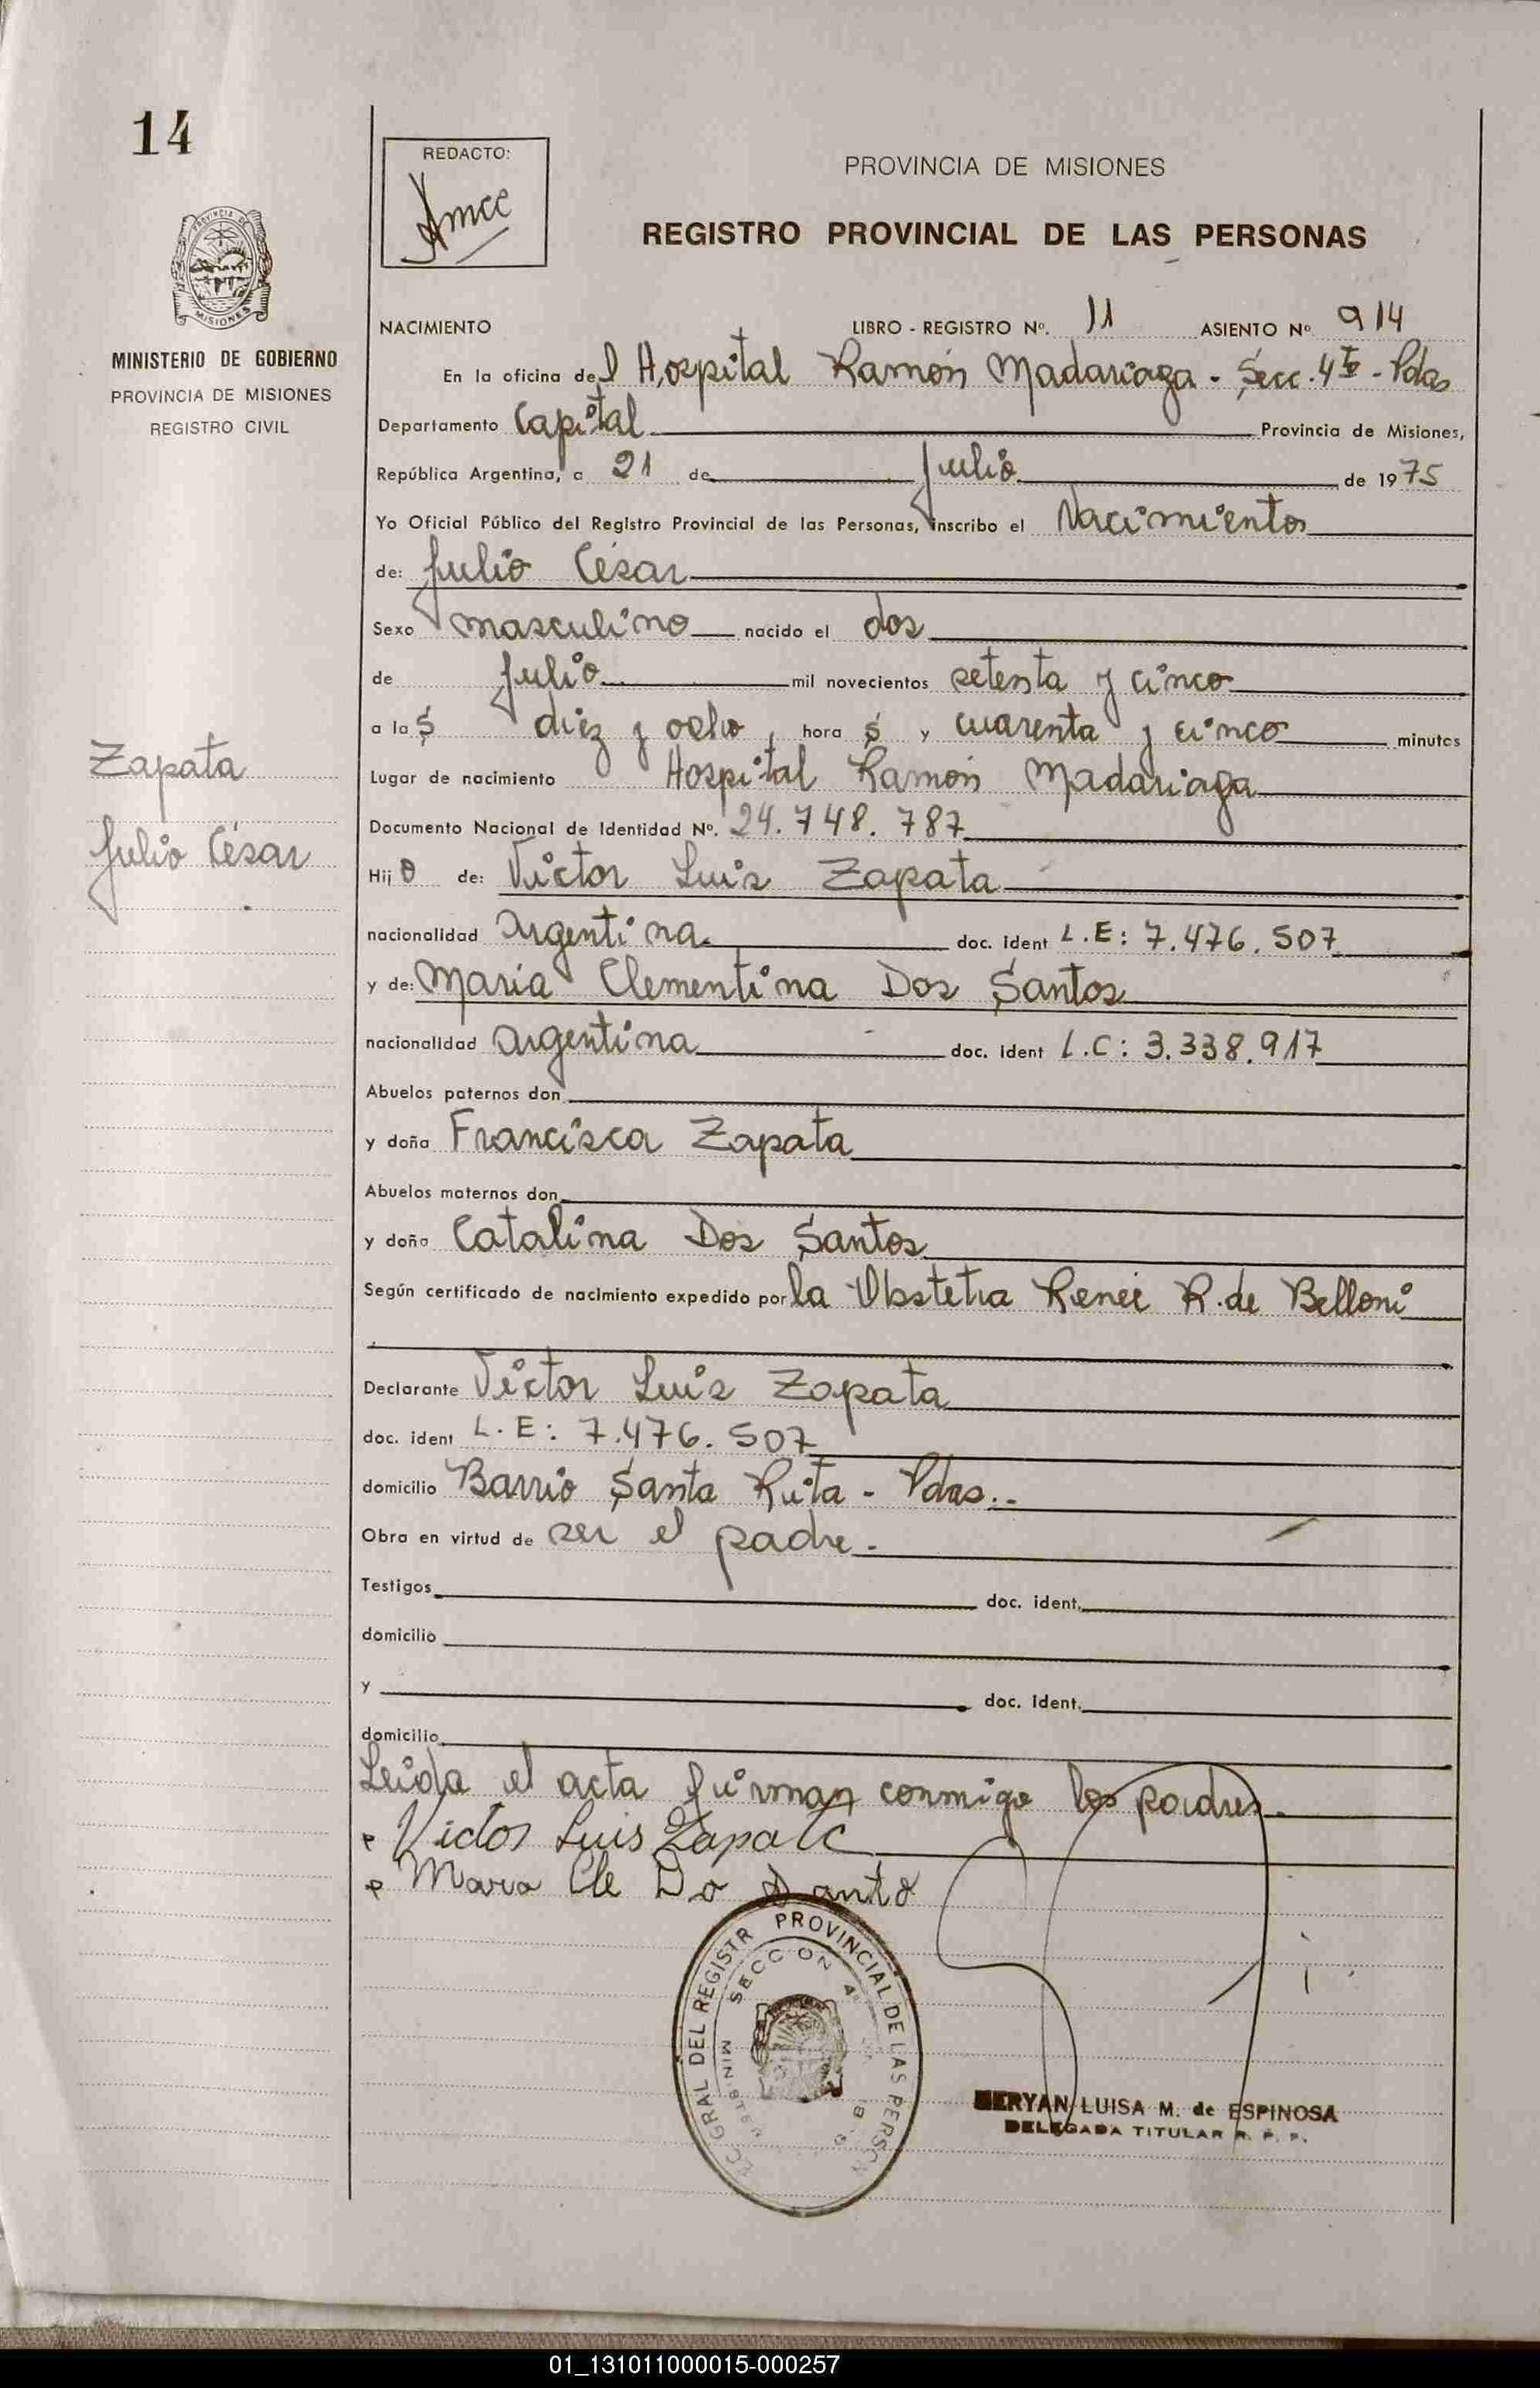 14
REDACTO:
PROVINCIA DE MISIONES
REGISTRO PROVINCIAL DE LAS PERSONAS
PROVINCIA DE
MISIONES
MINISTERIO DE GOBIERNO
PROVINCIA DE MISIONES
REGISTRO CIVIL
NACIMIENTO LIBRO - REGISTRO Nº. 11 ASIENTO Nº. 914
En la oficina del Hospital Ramón Madariaga - Secc. 4ta - Pdas
Departamento Capital Provincia de Misiones,
República Argentina, a 21 de Julio de 1975
Yo Oficial Público del Registro Provincial de las Personas, inscribo el Nacimiento
de: Julio César
Sexo masculino nacido el dos
de Julio mil novecientos setenta y cinco
a las diez y ocho, horas y cuarenta y cinco minutos
Zapata
Julio César
Lugar de nacimiento Hospital Ramón Madariaga
Documento Nacional de Identidad Nº. 24.748.787
Hijo de: Víctor Luis Zapata
nacionalidad Argentina doc. ident L.E: 7.476.507
y de: María Clementina Dos Santos
nacionalidad argentina doc. ident L.C: 3.338.917
Abuelos paternos don
y doña Francisca Zapata
Abuelos maternos don
y doña Catalina Dos Santos
Según certificado de nacimiento expedido por la Obstetra Reneé R. de Belloni
Declarante Víctor Luis Zapata
doc. ident L.E: 7.476.507
domicilio Barrio Santa Rita - Pdas.-
Obra en virtud de ser el padre.-
Testigos doc. ident.
domicilio
y doc. ident.
domicilio
Leída el acta firman conmigo los padres.
Victos Luis Zapata
Maria Cle Do Santo
GRAL DEL REGISTR PROVINCIAL DE LAS PERSON
SECCION 4
MINISTER
MERYAN LUISA M. de ESPINOSA
DELEGADA TITULAR R. P. P.
01_131011000015-000257